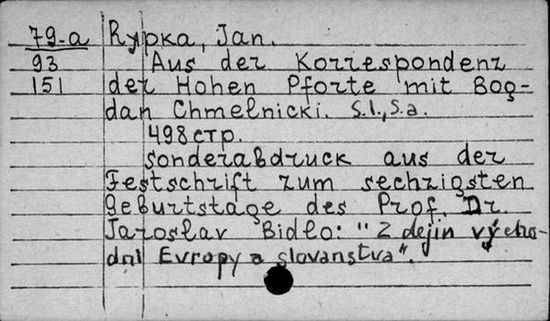 79-a Rypka, Jan.
93 Aus der Korrespondenz
151 der Hohen Pforte mit Bog-
dan Chmelnicki. S.l., S.a.
498 стр.
Sonderabdruck aus der
Festschrift zum sechzigsten
Geburtstage des Prof. Dr.
Jaroslav Bidlo: "Z dejin výcho-
dní Evropy a slovanstva".